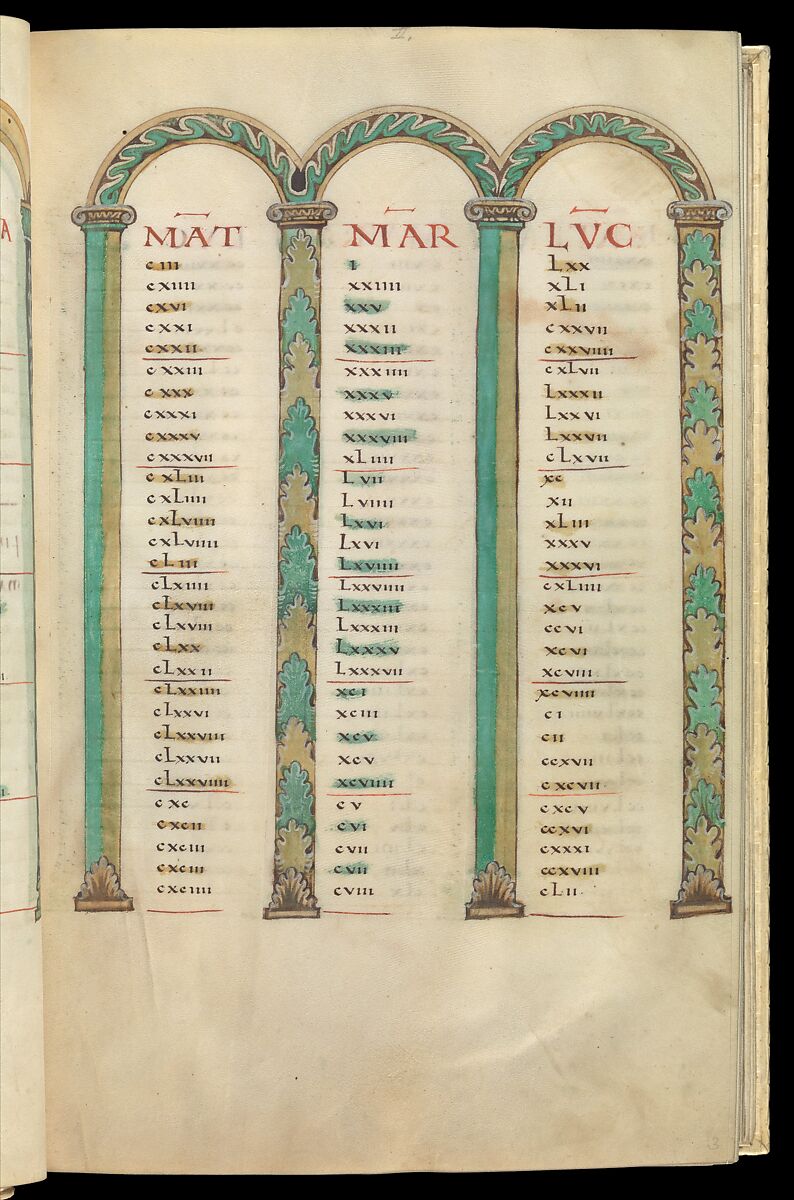 II.
MAT MAR LVC
ciii i Lxx
cxiiii xxiiii xLi
cxvi xxv xLii
cxxi xxxii cxxvii
cxxii xxxiii cxxviiii
cxxiii xxxiiii cxLvii
cxxx xxxv Lxxxii
cxxxi xxxvi Lxxvi
cxxxv xxxviii Lxxvii
cxxxvii xLiiii cLxvii
cxLiii Lvii xc
cxLiiii Lviiii xii
cxLviiii Lxvi xLiii
cxLviiii Lxvi xxxv
cLiii Lxviiii xxxvi
cLxiiii Lxxviiii cxLiiii
cLxviii Lxxxiii xcv
cLxviii Lxxxiii ccvi
cLxx Lxxxv xcvi
cLxxii Lxxxvii xcviii
cLxxiiii xci xcviiii
cLxxvi xciii ci
cLxxviii xcv cii
cLxxvii xcv ccxvii
cLxxviiii xcviiii cxcvii
cxc cv cxcv
cxcii cvi ccxvi
cxciii cvii cxxxi
cxciii cvii ccxviii
cxciiii cviii cLii.
3